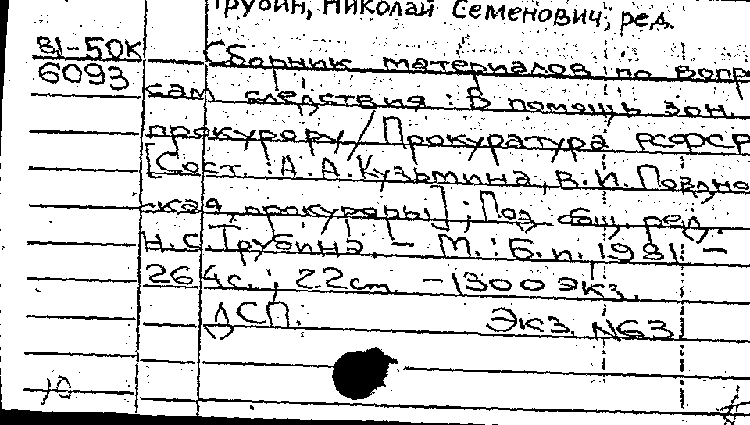 Трубин, Николай Семенович, ред.
81-50К Сборник материалов по вопр
6093 сам следствия: В помощь зон.
прокурору / Прокуратура РСФСР
[Сост.: А.А. Кузьмина, В.И. Поздня
кая, прокуроры]; Под общ. ред.
Н.С. Трубина. - М.: Б.и., 1981. -
264с.; 22см. - 1300 экз.
ДСП. Экз. N63